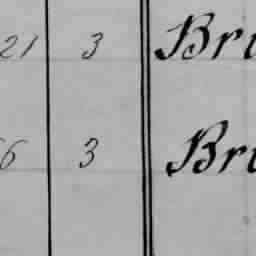 21 3 Bri
6 3 Bri